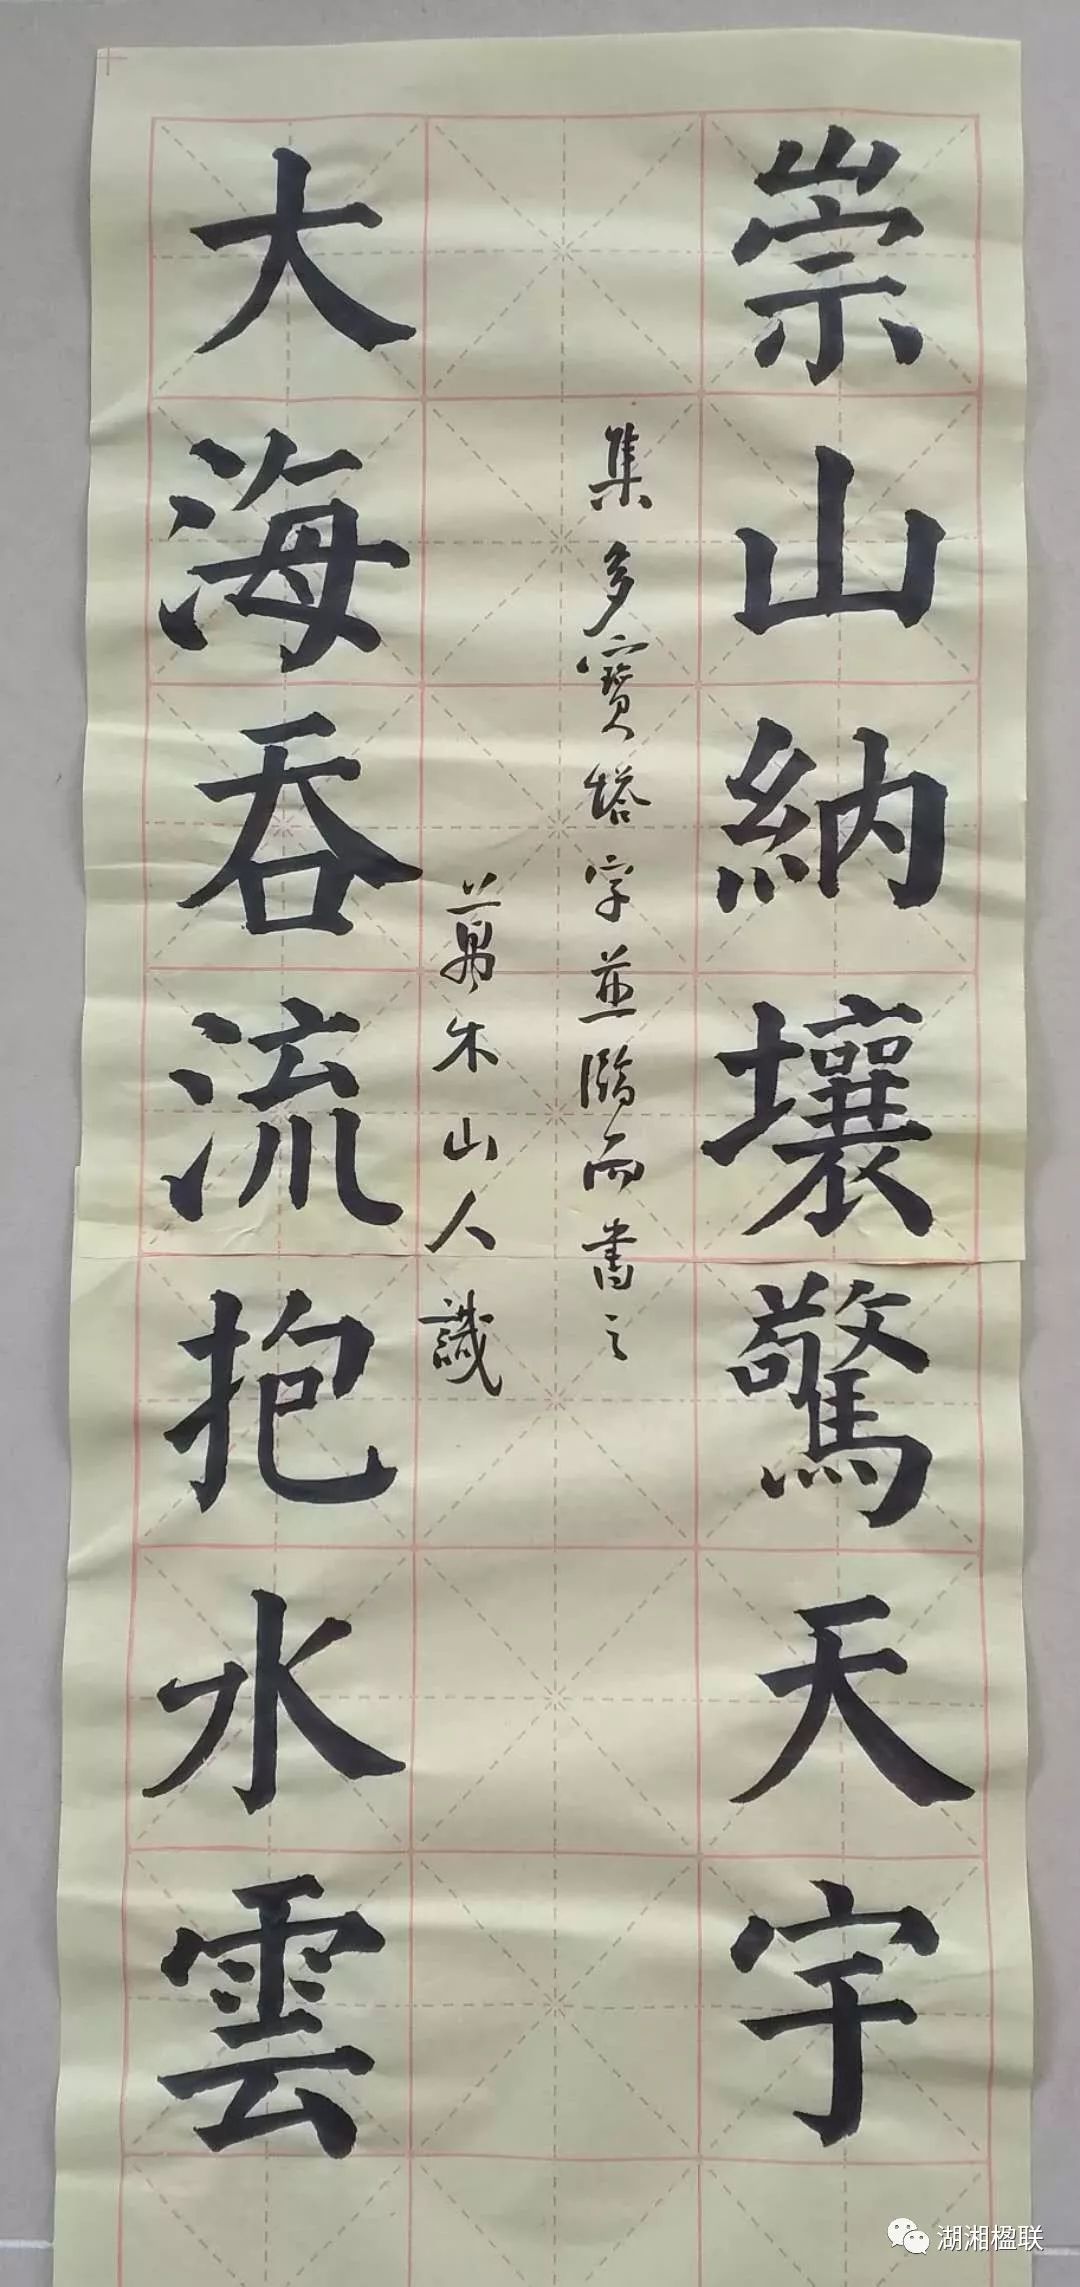 崇山納壤驚天宇
集多寶塔字並臨而書之
萬木山人識
大海吞流抱水雲
湖湘楹联